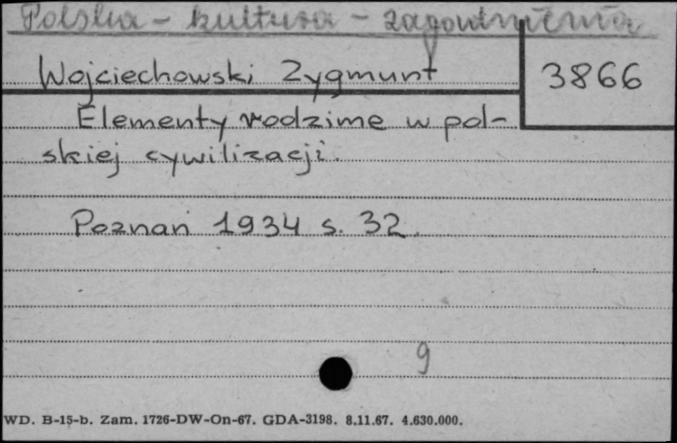 Polska - kultura - zagadnienia
Wojciechowski Zygmunt
3866
Elementy rodzime w pol-
skiej cywilizacji.
Poznań 1934 s. 32.
9
WD. B-15-b. Zam. 1726-DW-On-67. GDA-3198. 8.11.67. 4.630.000.